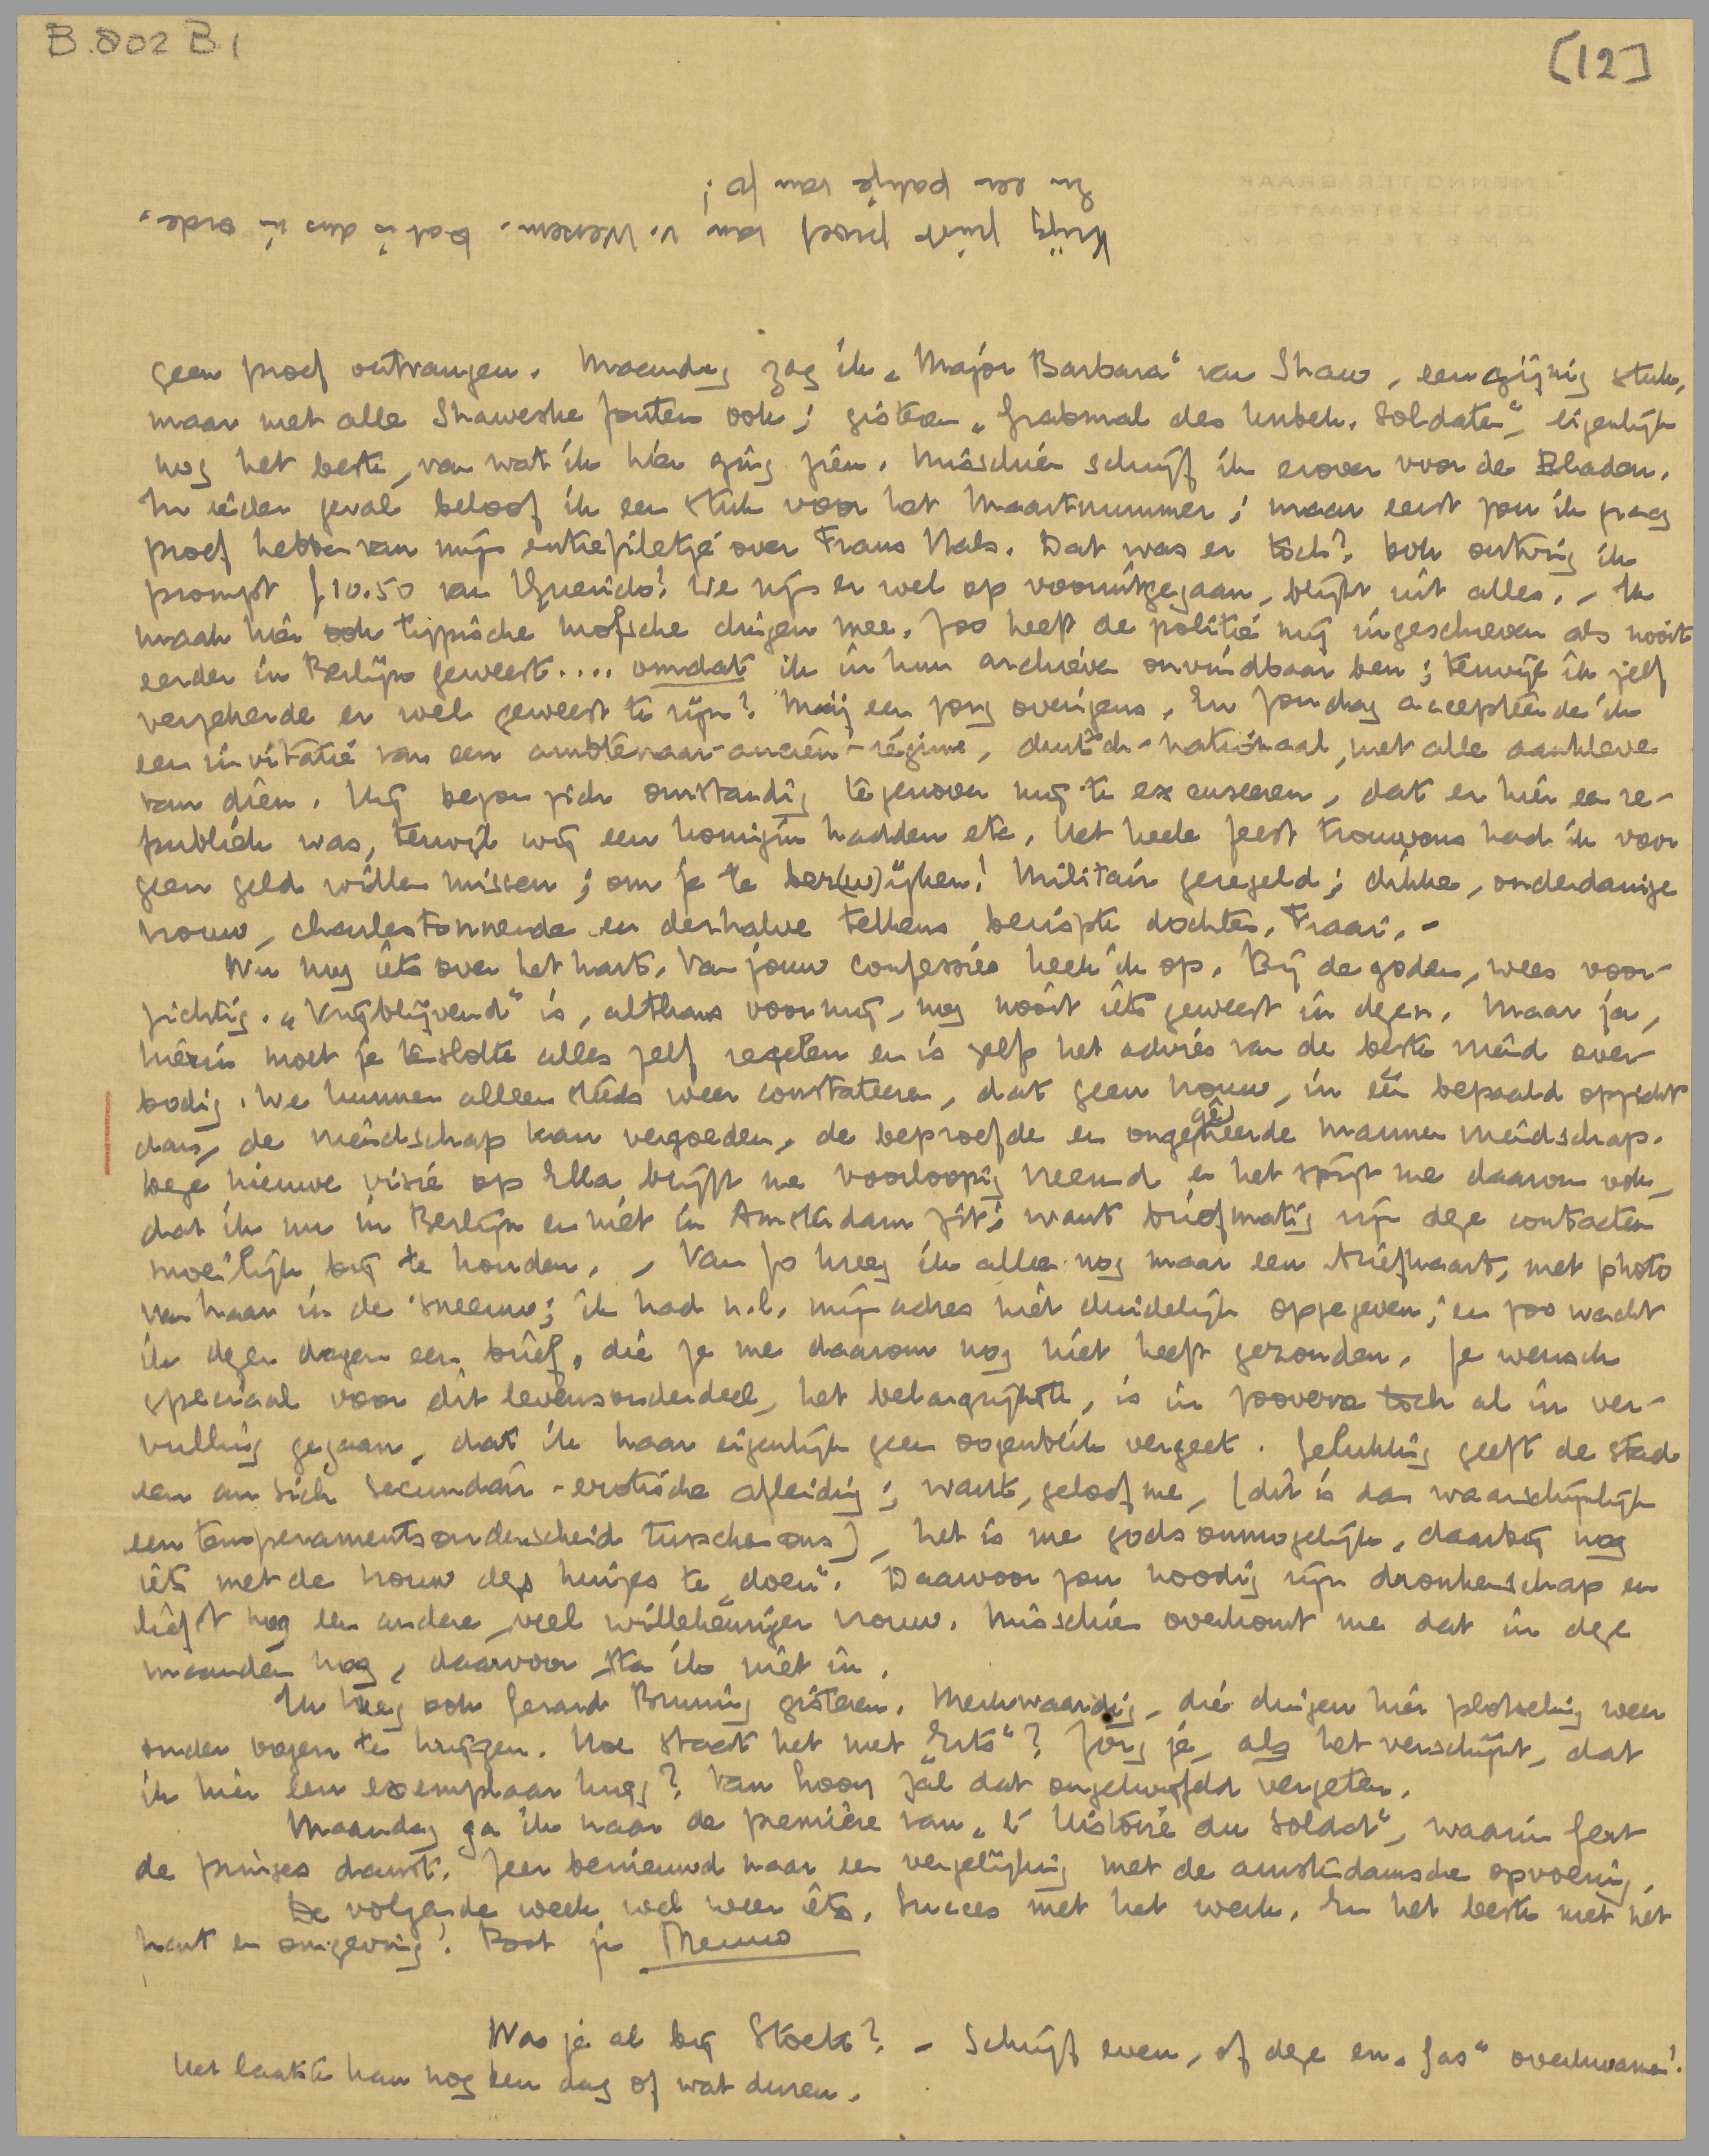 B.802 B.1
[12]
Krijg juist proef van v. Wessem. Dat is dus in orde.
En een pakje van Jo!
geen proef ontvangen. Maandag zag ik „Major Barbara" van Shaw, een geijnig stuk,
maar met alle Shaweske fouten ook; gisteren „Grabmal des Unbek. Soldaten", eigenlijk
nog het beste, van wat ik hier ging zien. Misschien schrijf ik erover voor de Bladen.
In ieder geval beloof ik een stuk voor het Maartnummer; maar eerst zou ik graag
proef hebben van mijn entrefiletje over Frans Hals. Dat was er toch? Ook ontving ik
prompt ƒ10.50 van Querido! We zijn er wel op vooruitgegaan, blijkt uit alles. – Ik
maak hier ook typische mofsche dingen mee. Zoo heeft de politie mij ingeschreven als nooit
eerder in Berlijn geweest.... omdat ik in hun archieven onvindbaar ben; terwijl ik zelf
verzekerde er wel geweest te zijn! Mij een zorg overigens. En Zondag accepteerde ik
een invitatie van een ambtenaar-ancien-régime, deutsch-nationaal, met alle aankleve
van dien. Hij begon zich omstandig tegenover mij te excuseeren, dat er hier een re-
publiek was, terwijl wij een koningin hadden etc. Het heele feest trouwens had ik voor
geen geld willen missen; om je te bez(w)ijken! Militair geregeld; dikke, onderdanige
vrouw, charlestonnende en derhalve telkens berispte dochter. Fraai. –
Nu nog iets over het hart. Van jouw confessies keek ik op. Bij de goden, wees voor-
zichtig. „Vrijblijvend" is, althans voor mij, nog nooit iets geweest in dezen. Maar ja,
hierin moet je tenslotte alles zelf regelen en is zelfs het advies van de beste vriend over-
bodig. We kunnen alleen steeds weer constateeren, dat geen vrouw, in één bepaald opzicht
dan, de vriendschap kan vergoeden, de beproefde en ongegêneerde mannenvriendschap.
Deze nieuwe visie op Ella blijft me voorloopig vreemd en het spijt me daarom ook,
dat ik nu in Berlijn en niet in Amsterdam zit; want briefmatig zijn deze contacten
moeilijk bij te houden. – Van Jo kreeg ik alleen nog maar een briefkaart, met photo
van haar in de sneeuw; ik had n.l. mijn adres niet duidelijk opgegeven; en zoo wacht
ik dezen dagen een brief, die ze me daarom nog niet heeft gezonden. Je wensch
speciaal voor dit levensonderdeel, het belangrijkste, is in zooverre toch al in ver-
vulling gegaan, dat ik haar eigenlijk geen oogenblik vergeet. Gelukkig geeft de stad
een an sich secundair-erotische afleiding; want, geloof me, (dit is dan waarschijnlijk
een temperamentsonderscheid tusschen ons), het is me gods onmogelijk, daarbij nog
iets met de vrouw des huizes te „doen". Daarvoor zou noodig zijn dronkenschap en
liefst nog een andere, veel willekeuriger vrouw. Misschien overkomt me dat in deze
maanden nog, daarvoor sta ik niet in.
Ik kreeg ook Gerard Bruning gisteren. Merkwaardig, die dingen hier plotseling weer
onder oogen te krijgen. Hoe staat het met „Erts"? Zorg je, als het verschijnt, dat
ik hier een exemplaar krijg? Van Looy zal dat ongetwijfeld vergeten.
Maandag ga ik naar de première van „l'Histoire du Soldat", waarin Gert
de prinses danst. Zeer benieuwd naar een vergelijking met de amsterdamsche opvoering.
De volgende week wel weer iets. Succes met het werk. En het beste met het
hart en omgeving! Poot je Menno
Was je al bij Stoett? – Schrijf even, of deze en „Gas" overkwamen!
Het laatste kan nog een dag of wat duren.